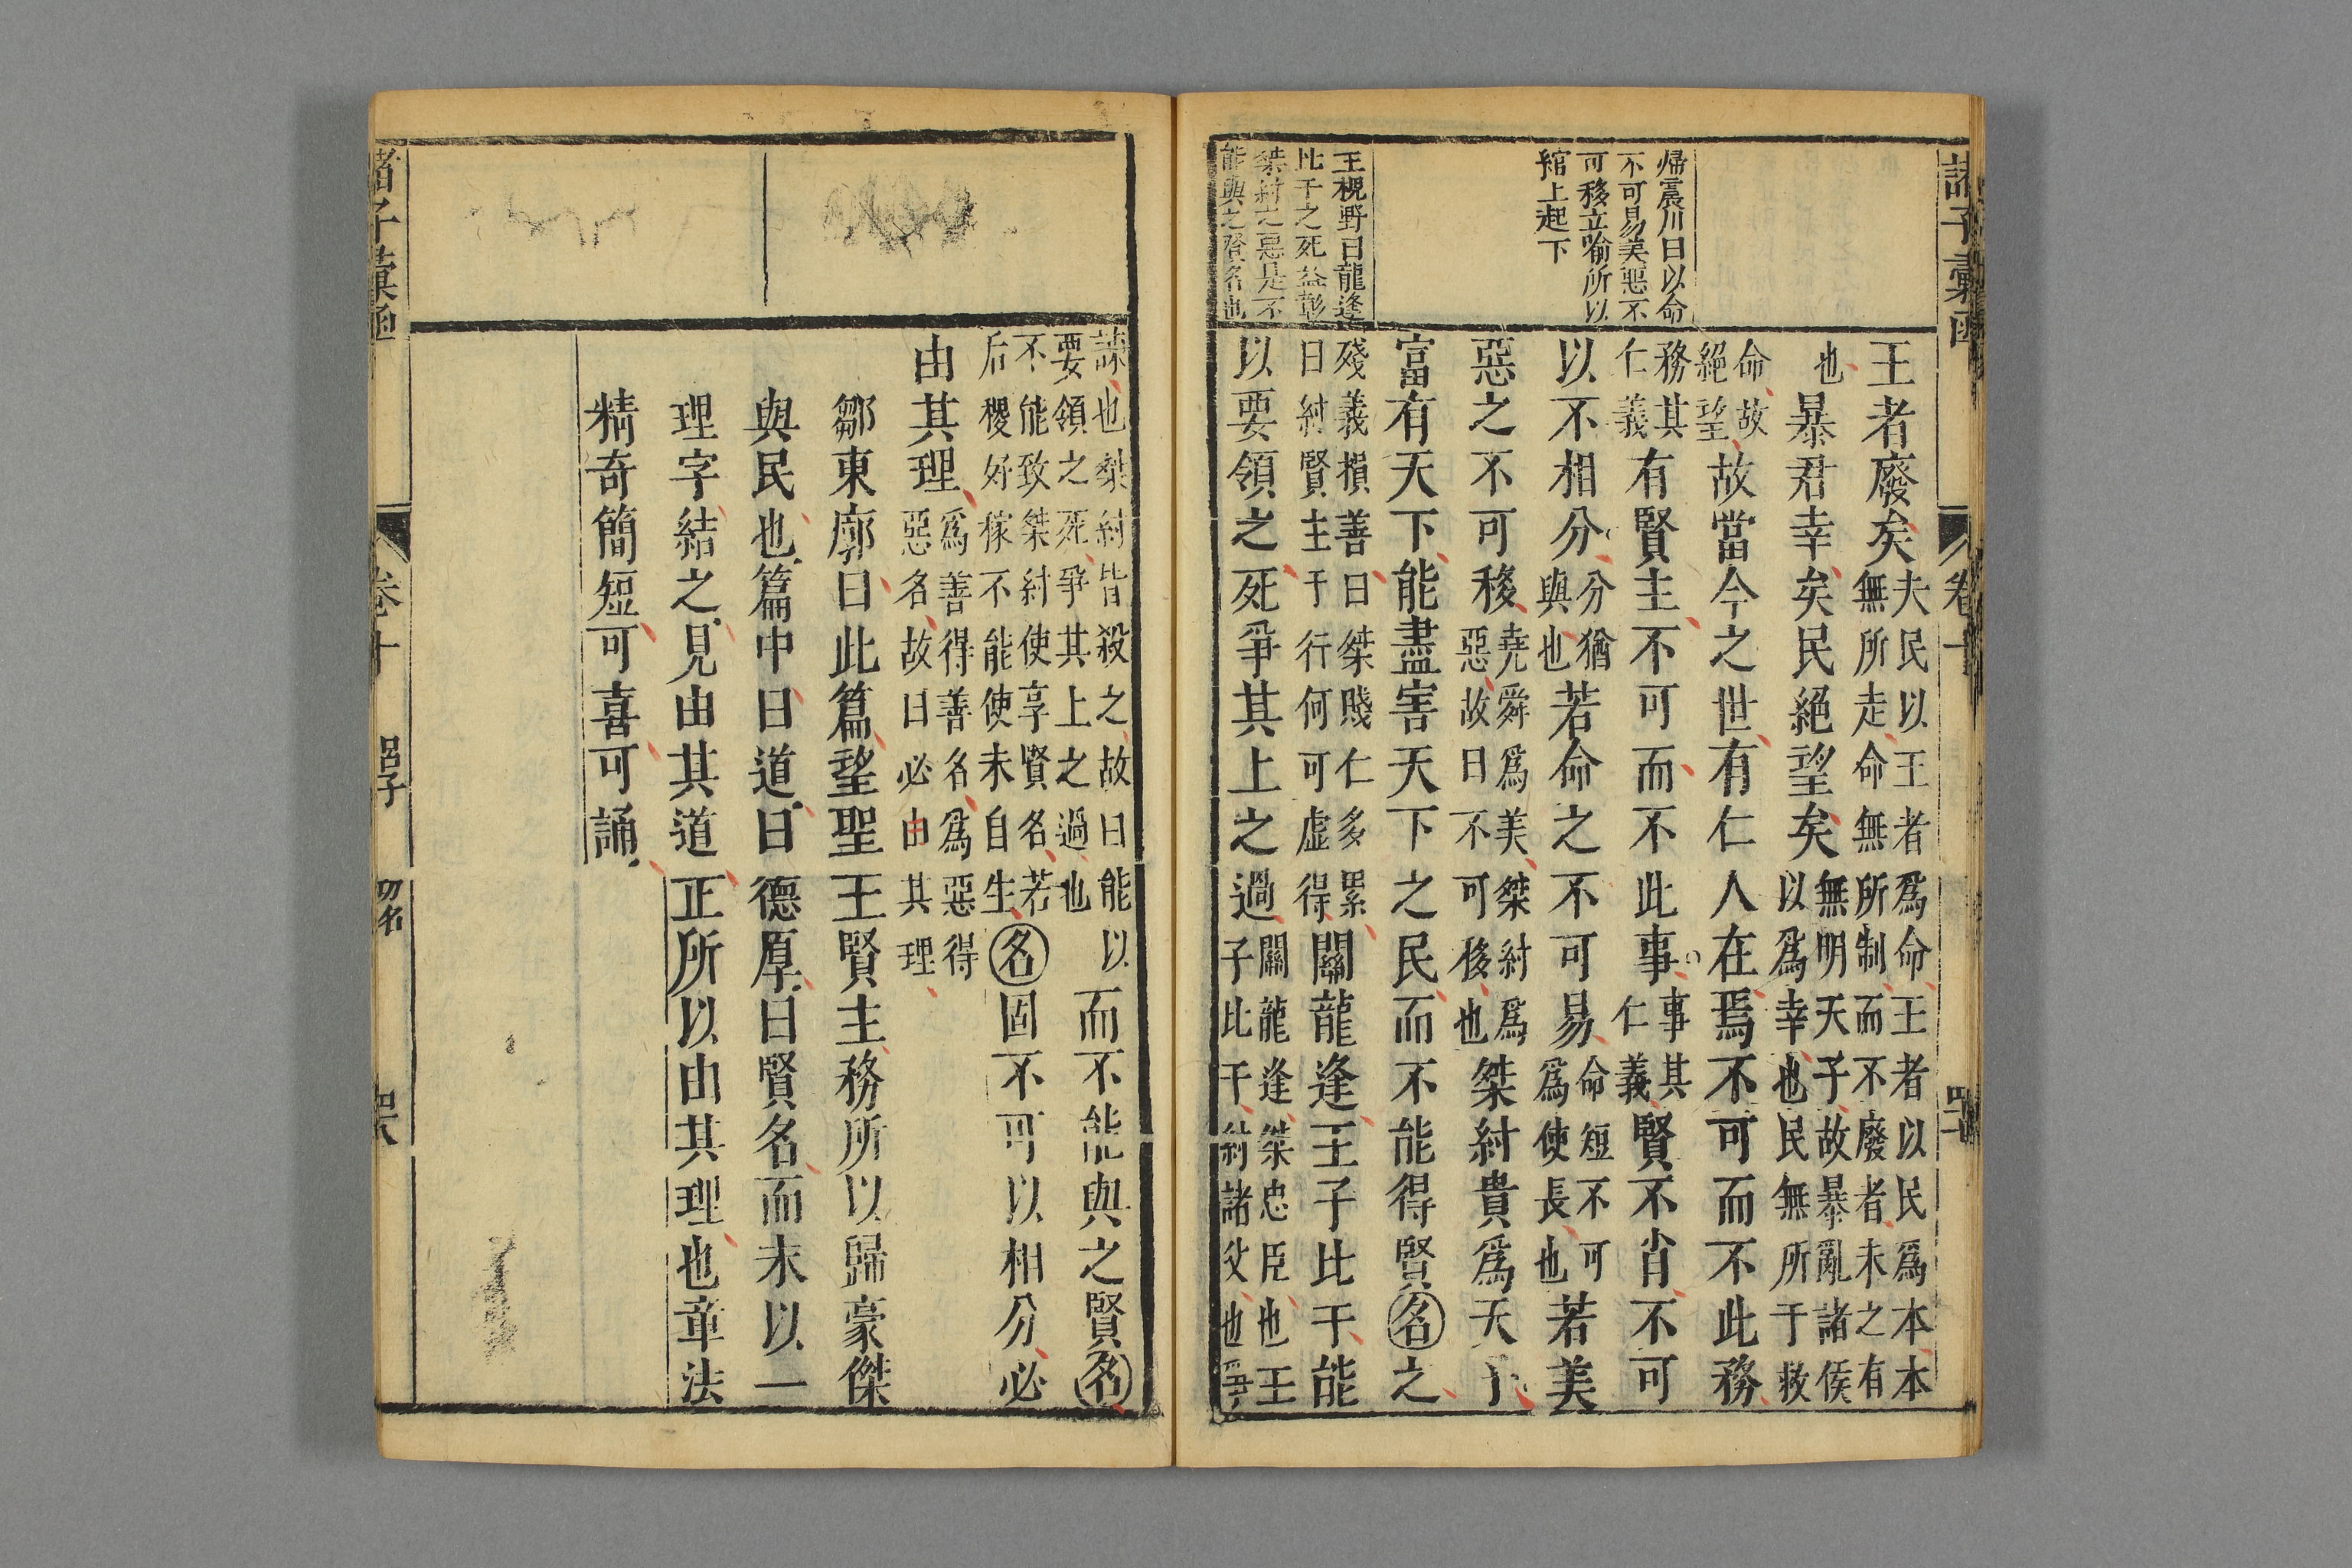 諸子彙函
卷十
王者廢矣夫民以王者爲命王者以民爲本本
無所走命無所制而不廢者未之有
也暴君幸矣民絕望矣無明天子故暴亂諸侯
以爲幸也民無所于救
命故
絕望故當今之世有仁人在焉不可而不此務
務其
仁義有賢主不可而不此事事其
仁義賢不肖不可
以不相分分猶
與也若命之不可易命短不可
爲使長也若美
惡之不可移堯舜爲美桀紂爲
惡故曰不可移也桀紂貴爲天子
富有天下能盡害天下之民而不能得賢名之
殘義損善曰桀賤仁多累
曰紂賢主于行何可虛得關龍逢王子比干能
以要領之死爭其上之過關龍逢桀忠臣也王
子比干紂諸父也爭
歸震川曰以命
不可易美惡不
可移立喻所以
綰上起下
王槐野曰龍逢
比干之死益彰
桀紂之惡是不
能與之賢名也
諫也桀紂皆殺之故曰能以
要領之死爭其上之過也而不能與之賢名
不能致桀紂使享賢名若
后稷好稼不能使未自生名固不可以相分必
由其理爲善得善名爲惡得
惡名故曰必由其理
鄒東廓曰此篇望聖王賢主務所以歸豪傑
與民也篇中曰道曰德厚曰賢名而末以一
理字結之見由其道正所以由其理也章法
精奇簡短可喜可誦
諸子彙函
卷十
呂子